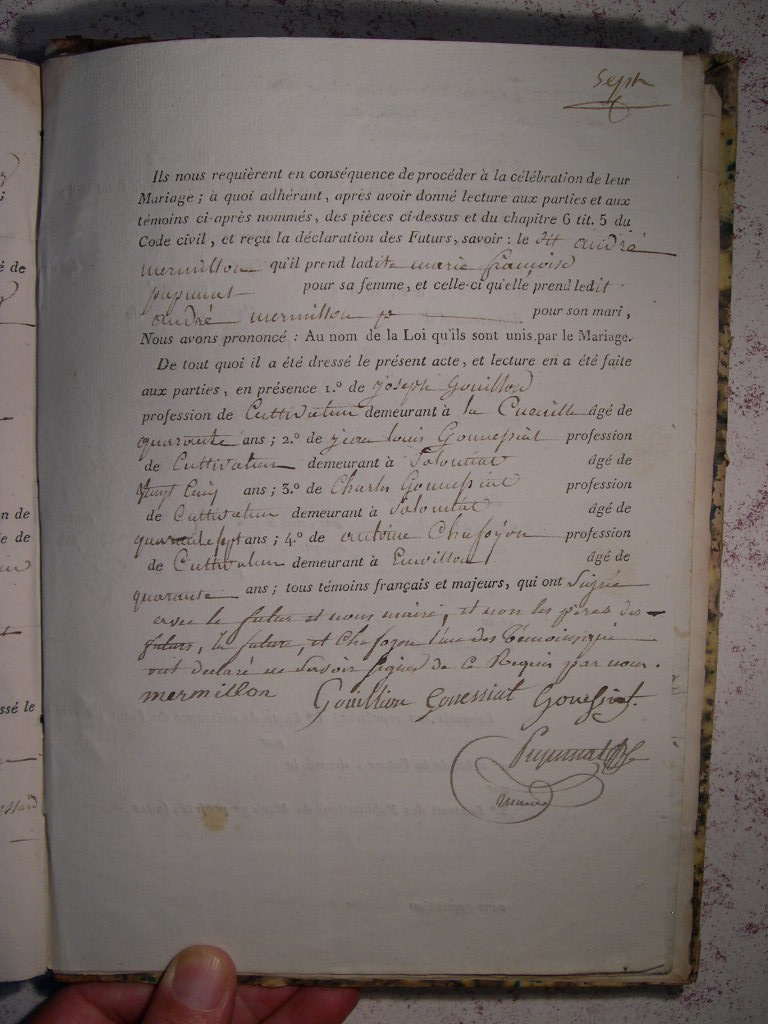 Sept
Ils nous requièrent en conséquence de procéder à la célébration de leur
Mariage ; à quoi adhérant, après avoir donné lecture aux parties et aux
témoins ci-après nommés, des pièces ci-dessus et du chapitre 6 tit. 5 du
Code civil, et reçu la déclaration des Futurs, savoir : le dit andré
mermillon qu'il prend ladite marie françoise
pupunat pour sa femme, et celle-ci qu'elle prend ledit
andré mermillon pour son mari,
Nous avons prononcé : Au nom de la Loi qu'ils sont unis par le Mariage.
De tout quoi il a été dressé le présent acte, et lecture en a été faite
aux parties, en présence 1.º de joseph Gouillon
profession de Cultivateur demeurant à la âgé de
quarante ans ; 2.º de jean louis Gouessiat profession
de Cultivateur demeurant à Solomiat âgé de
vingt Cinq ans ; 3.º de Charles Gouessiat profession
de Cultivateur demeurant à Solomiat âgé de
quarante sept ans ; 4.º de antoine Chafoyon profession
de Cultivateur demeurant à âgé de
quarante ans ; tous témoins français et majeurs, qui ont Signé
avec le futur et nous maire, et non les pères des
futurs, la future, et Chafoyon l'un des témoins qui
ont déclaré ne Savoir signer de ce Requis par nous.
mermillon Gouillion Gouessiat Gouessiat.
Pupunat
maire
é de
n de
e de
ssé le